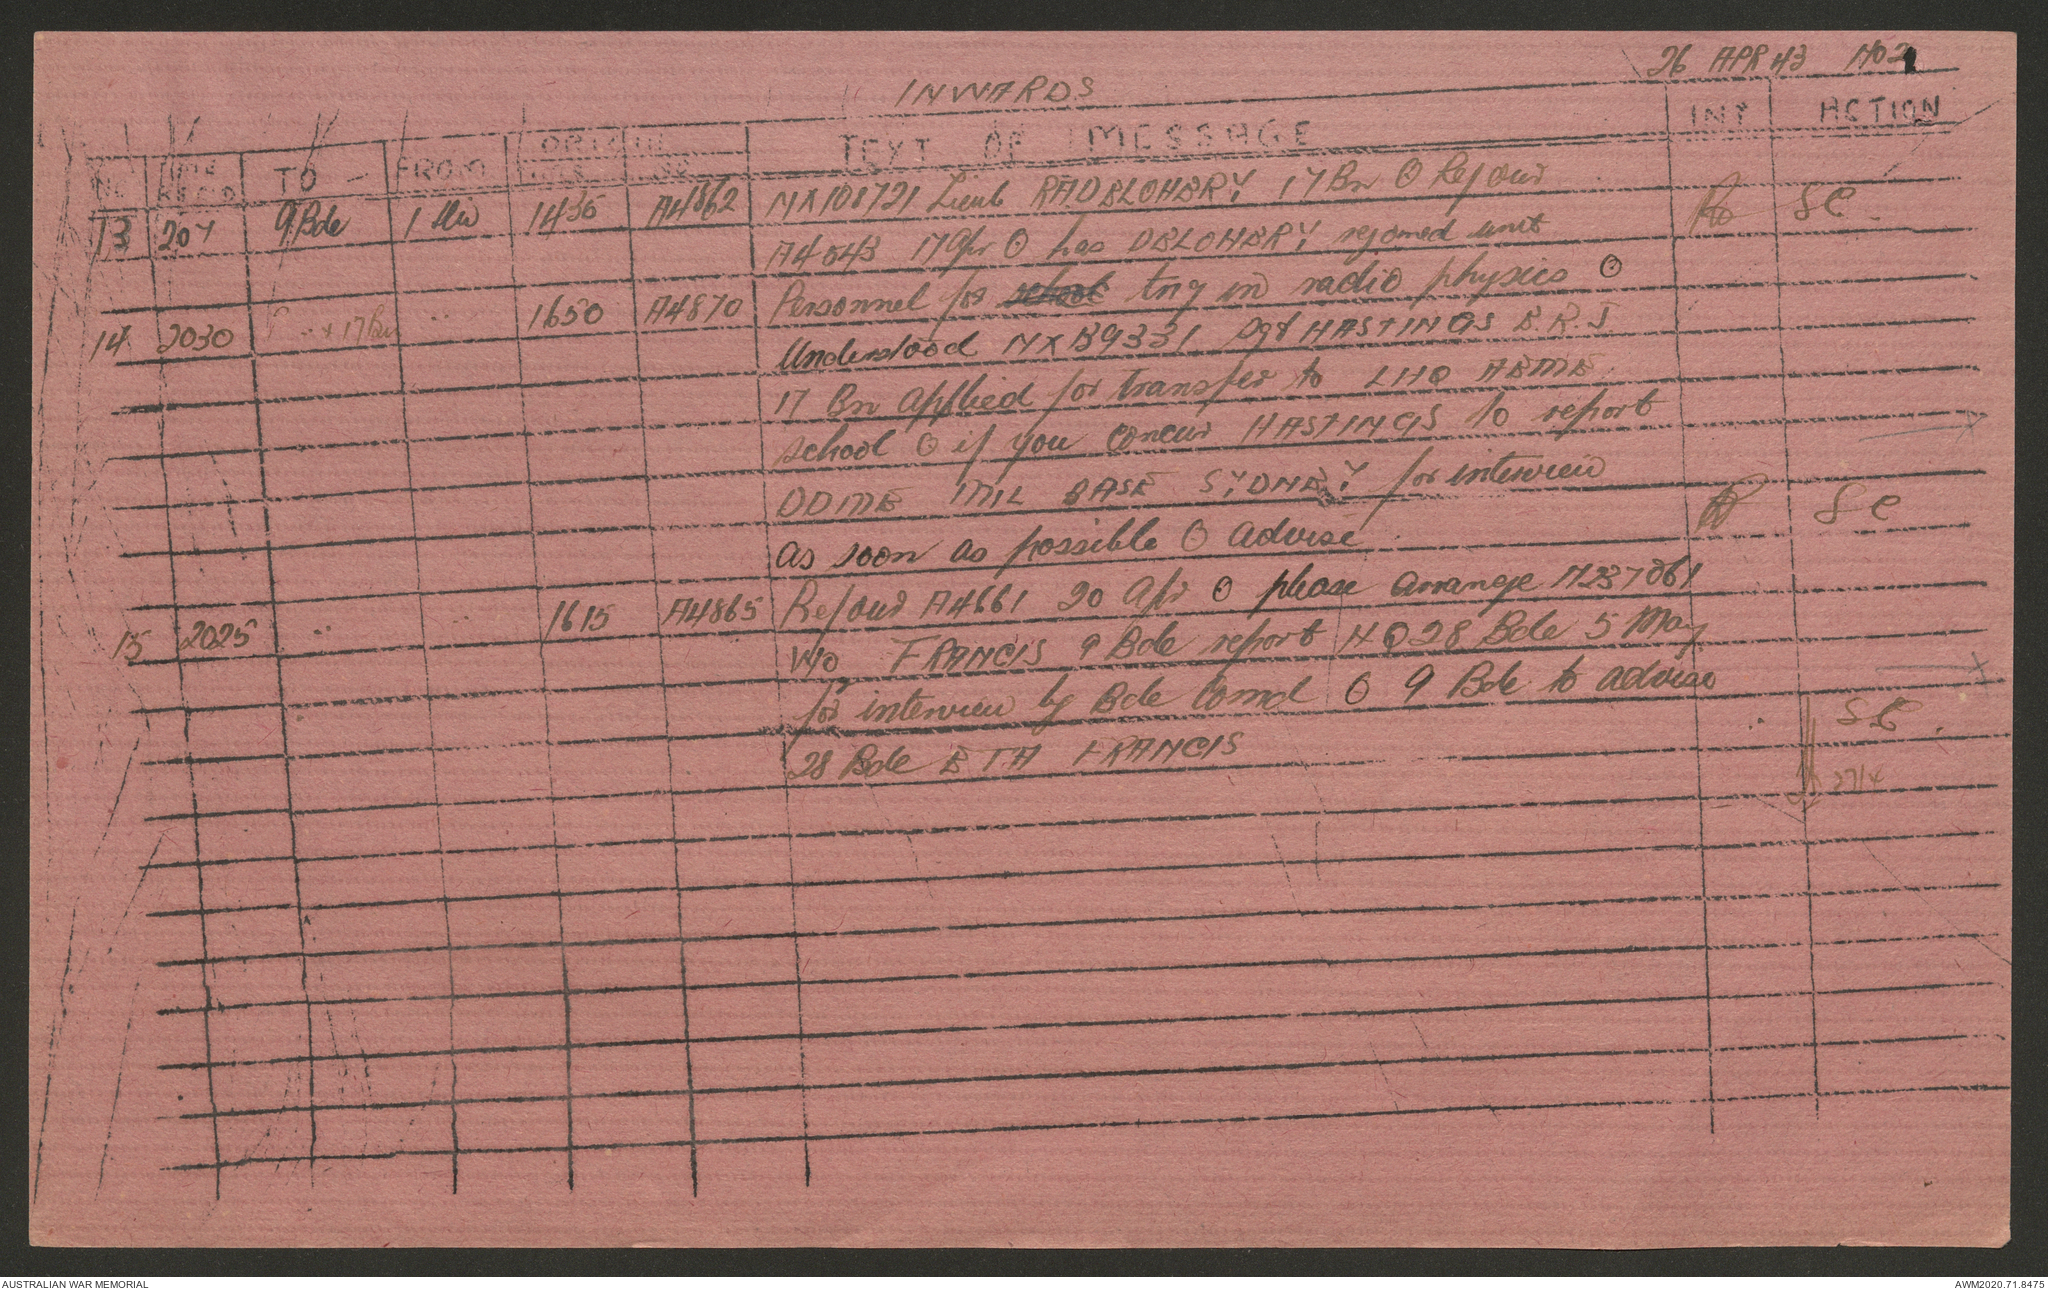 26 APR 43 NO 2
INWARDS
NO TIME REC'D TO FROM ORIGIN TEXT OF MESSAGE INT ACTION
13 207 9 Bde 1 Div 1435 A4862 NX108721 Lieut RADELOHERY 17 Bn O Refour SC
A4543 17 Apr O has DELOHERY rejoined unit
14 2030 " + 17 Bn " 1650 A4870 Personnel for school tng in radio physics O
Understood NX139331 Sgt HASTINGS E.R.J.
17 Bn applied for transfer to LHQ AEME
school O if you concur HASTINGS to report
DDME MIL BASE SYDNEY for interview SC
as soon as possible O advise
15 2025 " " 1615 A4865 Refour A4661 20 Apr O please arrange N237061
W/O FRANCIS 9 Bde report HQ 28 Bde 5 May
for interview by Bde Comd O 9 Bde to advise SC
28 Bde ETA FRANCIS 27/4
AUSTRALIAN WAR MEMORIAL AWM2020.71.8475